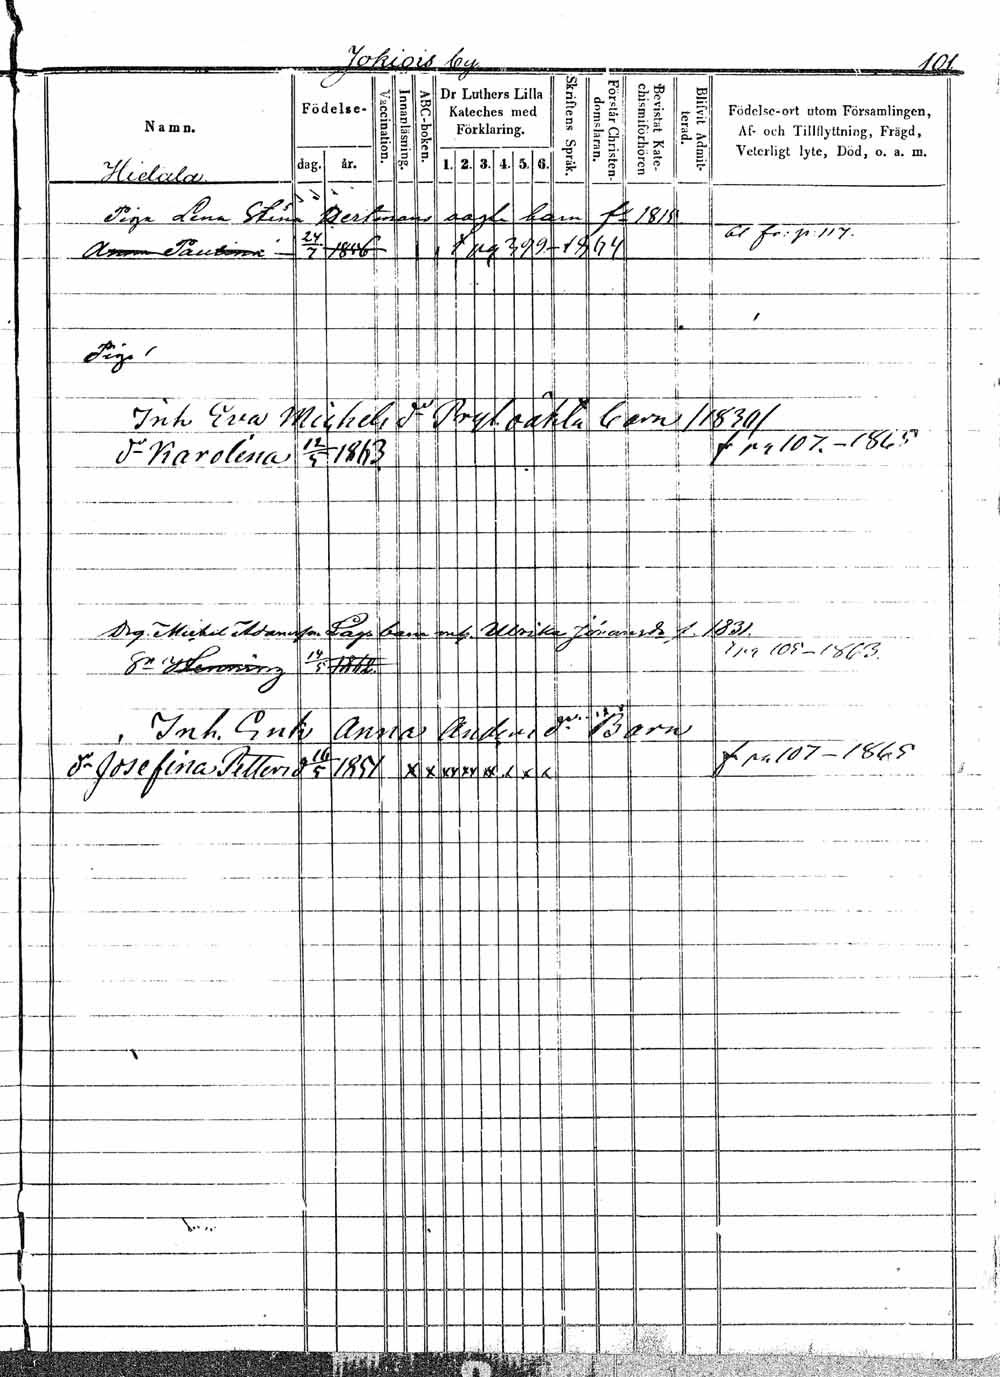 Jokiois by
101
Namn.
Födelse-
dag. år.
Vaccination.
Innanläsning.
ABC-boken.
Dr Luthers Lilla
Kateches med
Förklaring.
1. 2. 3. 4. 5. 6.
Skriftens Språk.
Förstår Christen-
domsläran.
Bevistat Kate-
chismiförhören
Blifvit Admit-
terad.
Födelse-ort utom Församlingen,
Af- och Tillflyttning, Frägd,
Veterligt lyte, Död, o. a. m.
Hidala
Piga Lena Stina barn 1815
fr: p: 117.
Anna Paulina 24/7 1846 399 - 1864
Piga
Inh Eva Michels dr oäkta barn /1830/
dr Karolina 12/5 1863 f pa 107. - 1865
Drg. Michel barn Ulrika f. 1831.
Sn Henning 14/5 1862 pa 105 - 1863.
Inh. Enk Anna Anders dr Barn
dr Josefina Petters d 16/5 1851 x x xx xx xx x x x f pa 107 - 1865